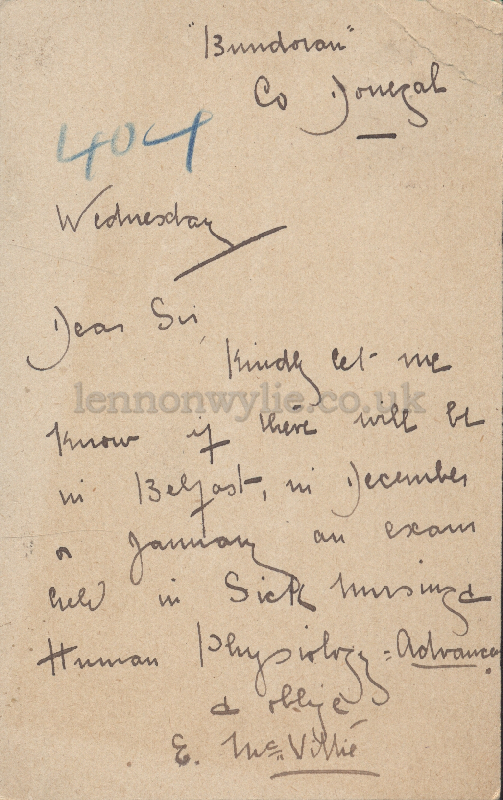 "Bundoran"
Co Donegal
404
Wednesday
Dear Sir
Kindly let me
lennonwylie.co.uk
know if there will be
in Belfast, in December
or January an exam
held in Sick Nursing &
Human Physiology = Advanced
& oblige
E. McVittie